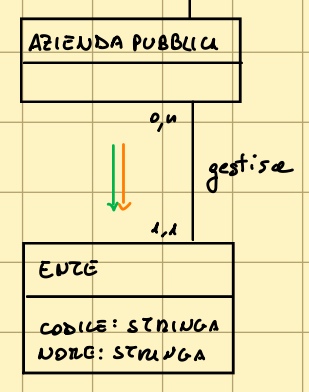 AZIENDA PUBBLICA
0,n
gestisce
1,1
ENTE
CODICE: STRINGA
NOME: STRINGA